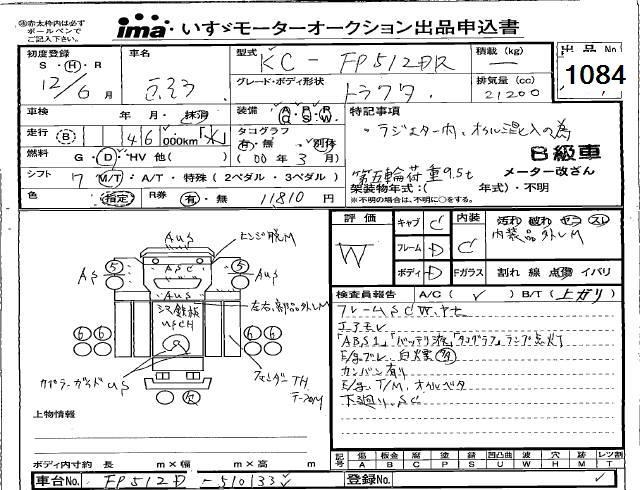 ㊟赤太枠内は必ず
ボールペンで
ご記入下さい。
ima いすゞモーターオークション出品申込書
初度登録
S・H・R
12/6月
車名
型式
KC-FP512DR
グレード・ボディ形状
トラクタ
積載 (kg)
排気量 (cc)
21200
出品No
1084
車検 年・月・抹消
走行 B 46 000km
燃料 G・D・HV 他( )
シフト 7 M/T・A/T・特殊 (2ペダル・3ペダル)
色 指定 R券 有・無 11810円
装備 A P R Q S W
タコグラフ
有・無 別体
(00年3月)
特記事項
・ラジエター内、オイル混入の為
B級車
メーター改ざん
第五輪荷重9.5t
架装物年式:( 年式)・不明
※不明の場合は、不明に○をする。
評価
W
キャブ C
フレーム D
ボディ D
内装 C
内装品外しM
Fガラス 割れ 線 点傷 イバリ
検査員報告 A/C( ✓ ) B/T(上ガリ)
フレームSCW
エアモレ
「ABS1」「バッテリ液」「タコグラフ」ランプ点灯
E/gブレ 白煙
カンバン有り
E/g、T/M、オイルベタ
下廻り、SC
AuS
ヒンジ脱M
AS
5
ASC
5
AS
AuS
AuS
AuS
シマ鉄板
uSCH
左右部品外しM
6 6
6 6
カプラーガイドuS
フェンダーTH
上物情報
ボディ内寸約 長 m×幅 m×高 m
記号 傷A 板金B 腐C 塗P 錆S 凹凸曲U 波W 穴H 脱M レツ割T
車台No. FP512D-510133
登録No.